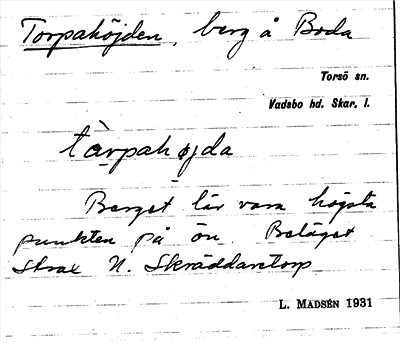 Torpahöjden, berg å Boda
Torsö sn.
Vadsbo hd. Skar. l.
tàrpahøjda
Berget lär vara högsta
punkten på ön. Beläget
strax N. Skräddaretorp
L. Madsén 1931